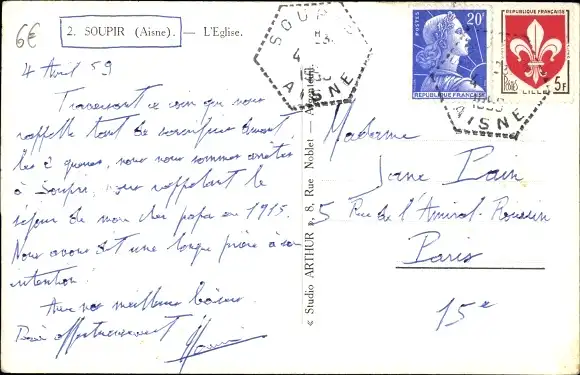 6€
2. SOUPIR (Aisne). — L'Eglise.
4 Avril 59
Traversant ce coin qui nous
rappelle tant de
les 2 guerres, nous nous sommes arrêtés
à Soupir, nous rappelant le
séjour de mon cher papa en 1915.
Nous avons dit une longue prière à son
intention.
Avec nos meilleurs baisers.
Bien affectueusement
« Studio ARTHUR », 8, Rue Noblet — Argenteuil.
SOUPIR
AISNE
POSTES
20F
REPUBLIQUE FRANÇAISE
SOUPIR
AISNE
REPUBLIQUE FRANÇAISE
POSTES
5F
LILLE
Madame
Jane Pain
5 Rue de l'Amiral-Roussin
Paris
15e